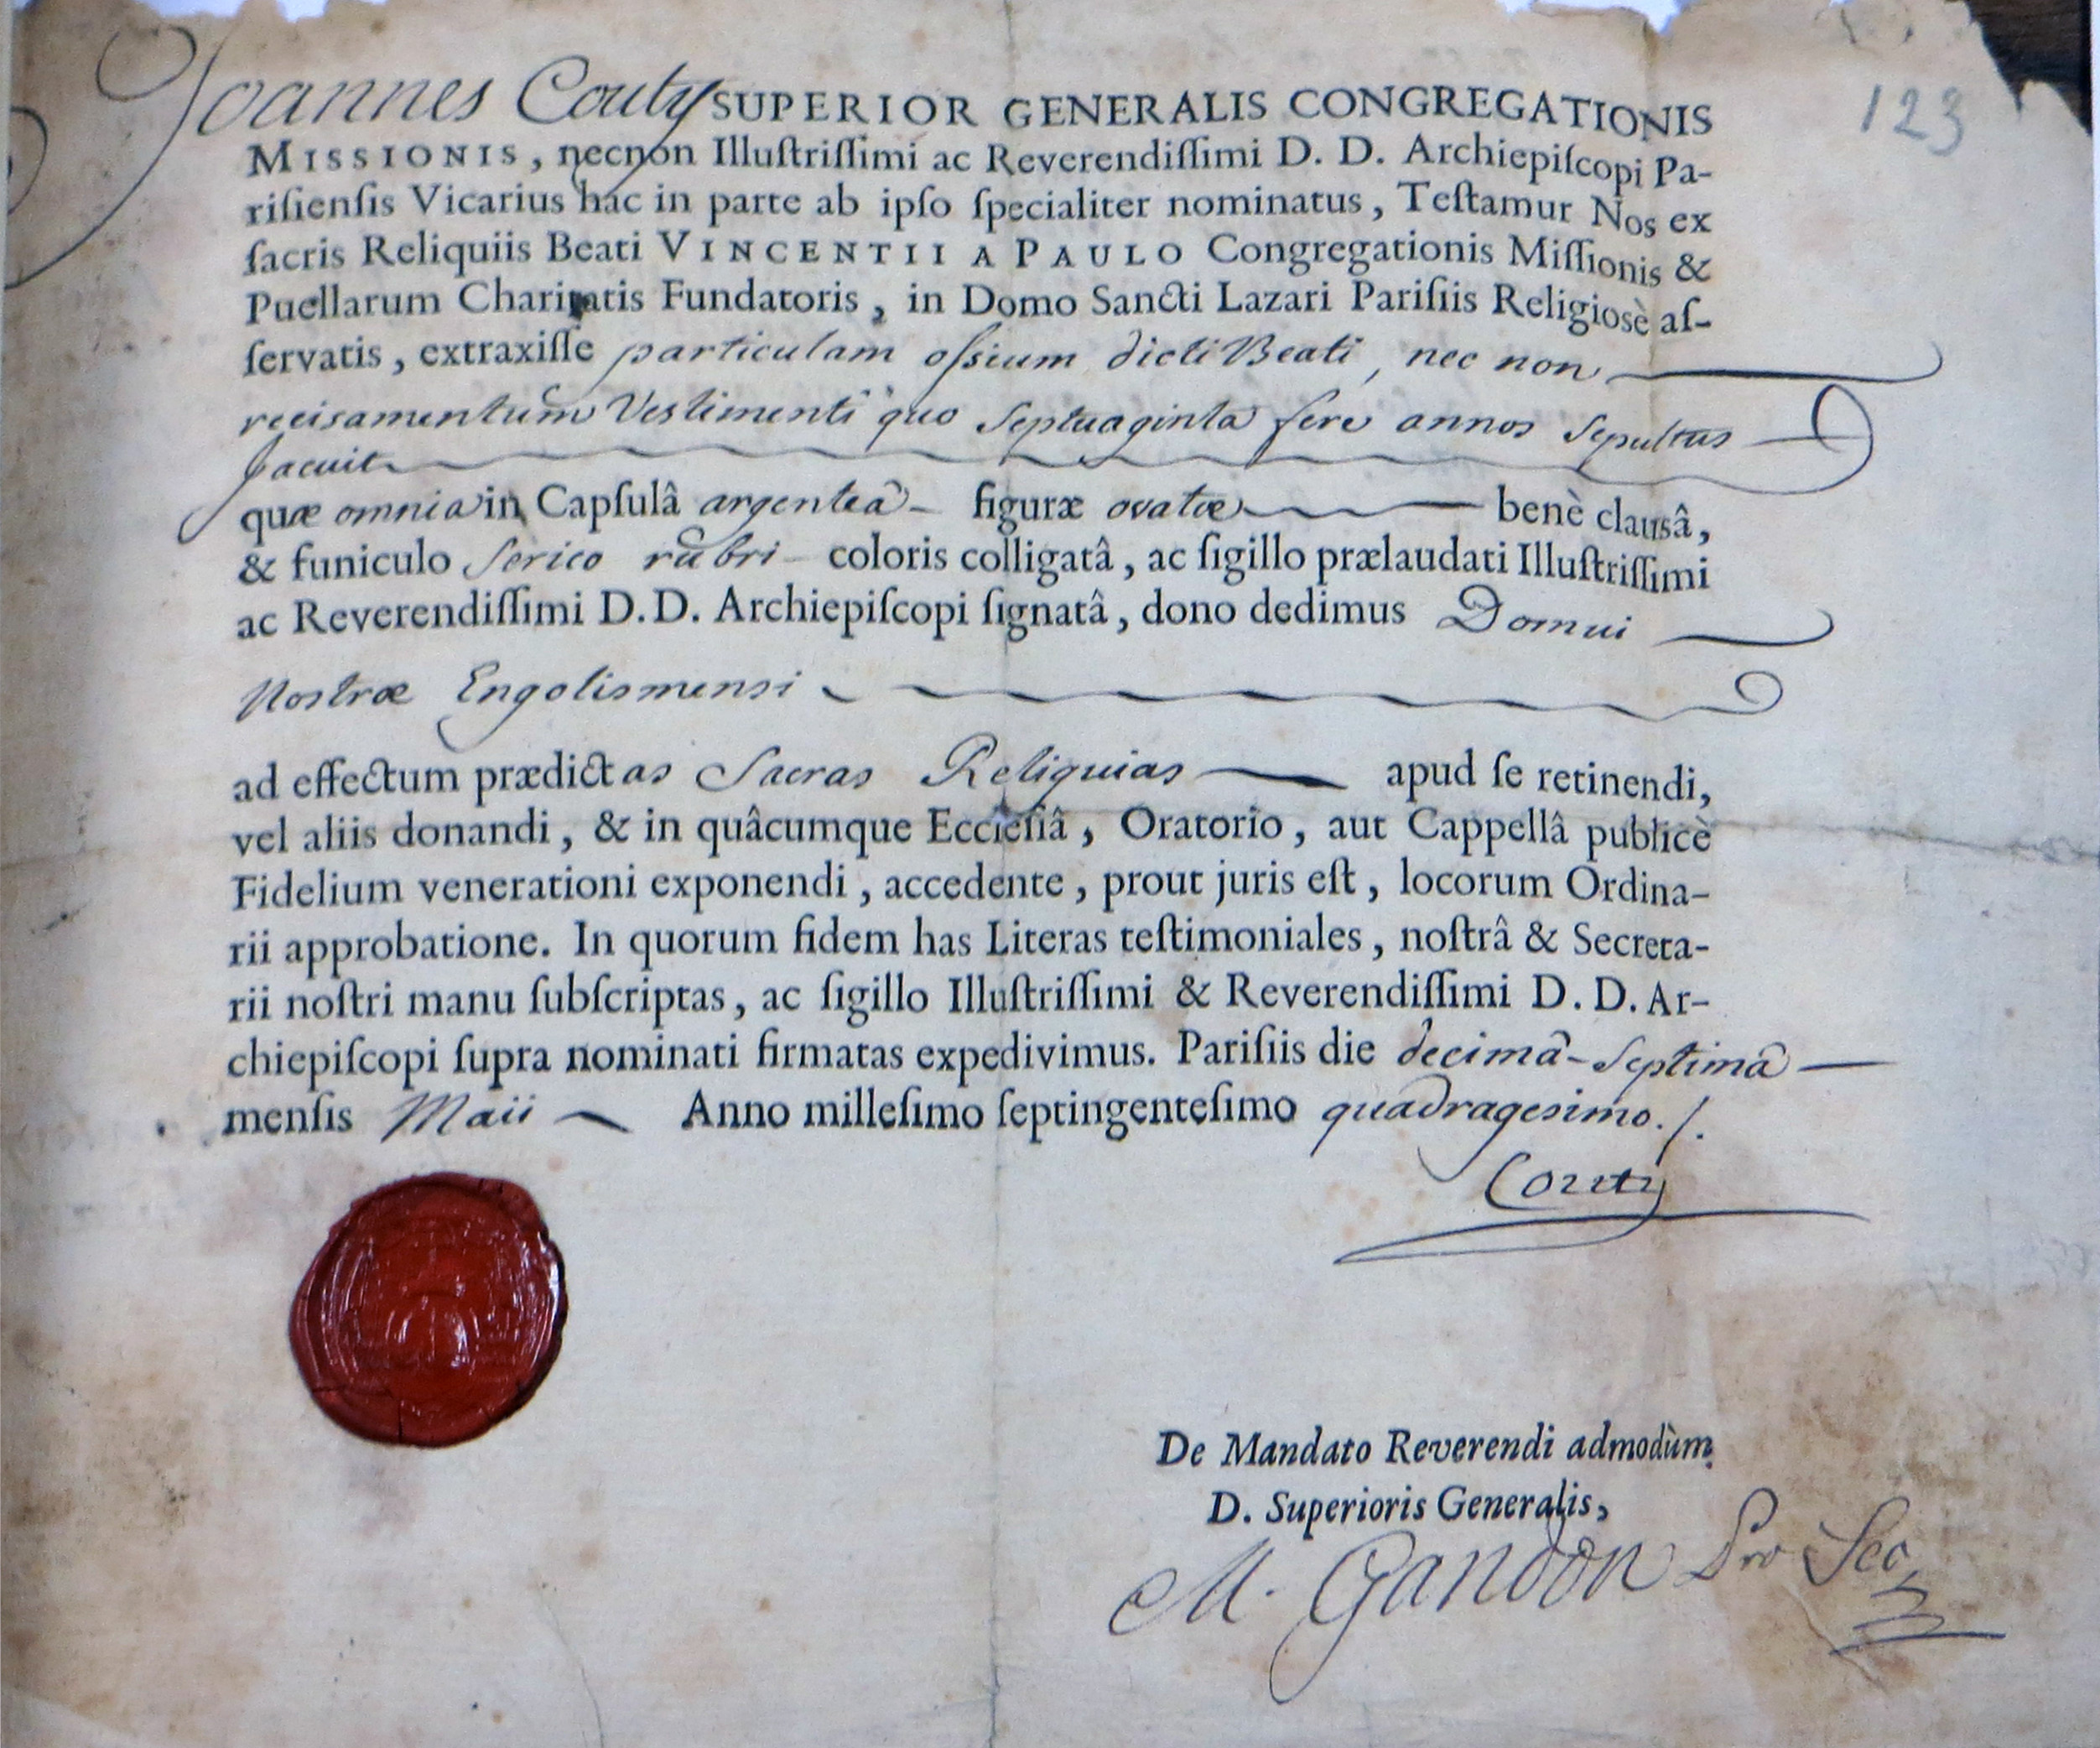 Joannes Couty SUPERIOR GENERALIS CONGREGATIONIS
123
MISSIONIS, necnon Illuſtriſſimi ac Reverendiſſimi D. D. Archiepiſcopi Pa-
riſienſis Vicarius hac in parte ab ipſo ſpecialiter nominatus, Teſtamur Nos ex
ſacris Reliquiis Beati VINCENTII A PAULO Congregationis Miſſionis &
Puellarum Charitatis Fundatoris, in Domo Sancti Lazari Pariſiis Religiosè aſ-
ſervatis, extraxiſſe particulam oſsium dicti Beati, nec non
recisamentum Vestimenti quo Septuaginta fere annos Sepultus
Jacuit
quæ omnia in Capſulâ argenteâ figuræ ovatæ benè clausâ,
& funiculo Serico rubri coloris colligatâ, ac ſigillo prælaudati Illuſtriſſimi
ac Reverendiſſimi D. D. Archiepiſcopi ſignatâ, dono dedimus Domui
Nostræ Engolismensi
ad effectum prædictas Sacras Reliquias apud ſe retinendi,
vel aliis donandi, & in quâcumque Eccleſiâ, Oratorio, aut Cappellâ publicè
Fidelium venerationi exponendi, accedente, prout juris eſt, locorum Ordina-
rii approbatione. In quorum fidem has Literas teſtimoniales, noſtrâ & Secreta-
rii noſtri manu ſubſcriptas, ac ſigillo Illuſtriſſimi & Reverendiſſimi D. D. Ar-
chiepiſcopi ſupra nominati firmatas expedivimus. Pariſiis die decimâ-Septimâ
menſis Maii Anno milleſimo ſeptingenteſimo quadragesimo./.
Couty
De Mandato Reverendi admodùm
D. Superioris Generalis,
M. Gandon Pro Sec